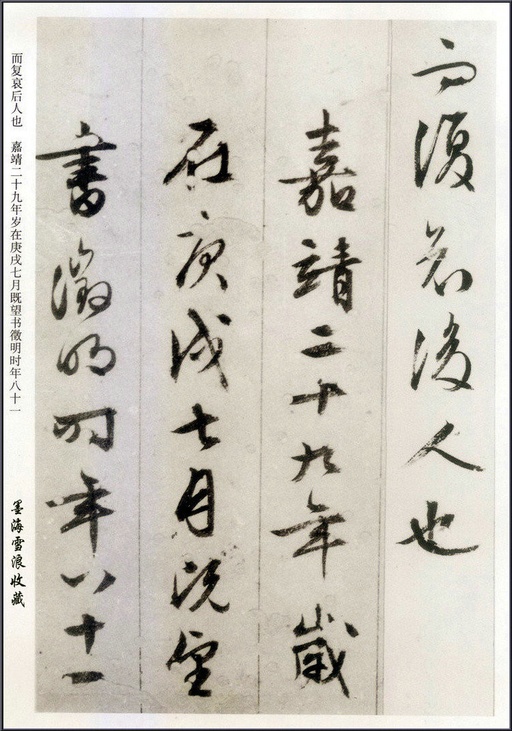 而復哀後人也
嘉靖二十九年歲
在庚戌七月既望
書徵明時年八十一
而复哀后人也 嘉靖二十九年岁在庚戌七月既望书徵明时年八十一
墨海雪浪收藏